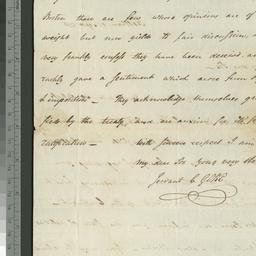 Boston there are few whose opinions are of
weight but now yield to fair discussion, a
very frankly confess they have been deceived, an
rashly gave a sentiment which arose from
& imposition — They acknowledge themselves
by the treaty, and are anxious for the
ratification — with sincere respect I am
my dear Sir your very
Servant C GORE